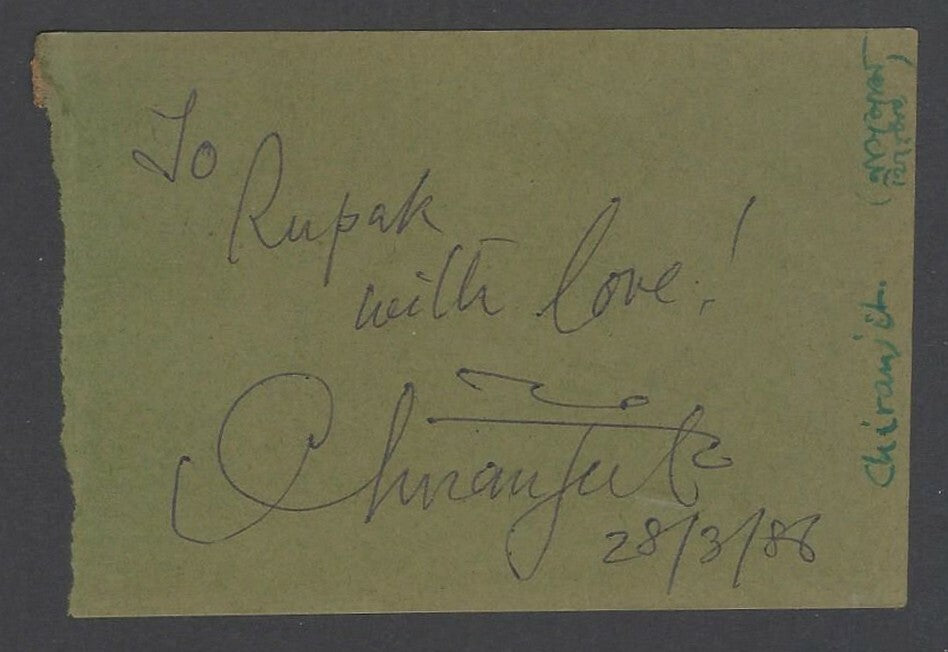 To
Rupak
with love!
Chiranjit
28/3/86
Chiranjit.